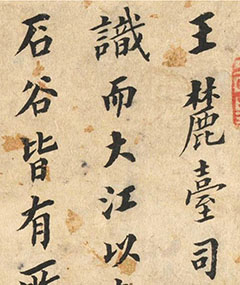 王麓臺司
識而大江以
石谷皆有